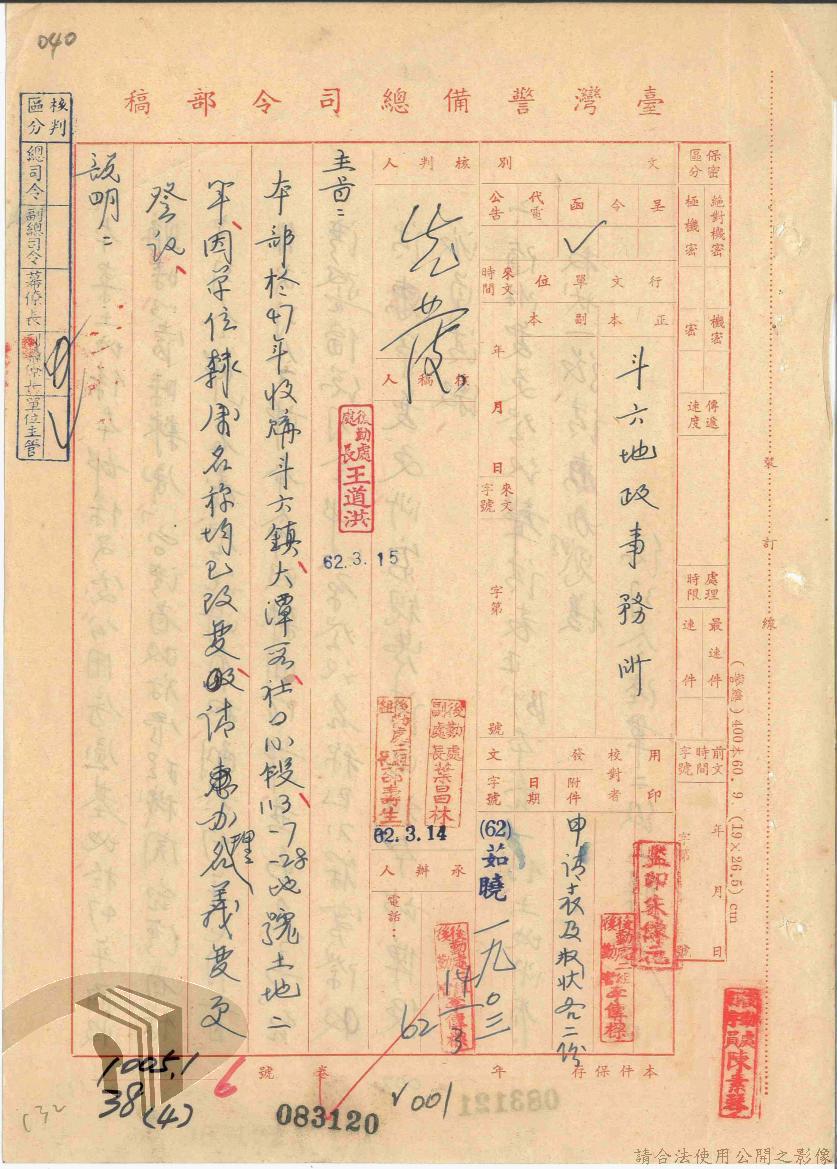 040
臺灣警備總司令部稿
保密區分
絕對機密
極機密
機密
密
傳遞速度
處理時限
最速件
速件
前文時間字號
年月日
字第號
文別
呈
令
函
代電
公告
行文單位
正本
副本
斗六地政事務所
來文時間
年月日
來文字號
字第號
用印
監印朱
校對者
發文
附件
申請表及权状各二份
日期
字號
(62)茹曉一九〇三
核判人
先發
核稿人
後勤處處長王道洪
62.3.15
後勤處副處長葉昌林
62.3.14
承辦人
電話
62 14/3
主旨：
本部於47年收購斗六鎮大潭段社口小段113-7、-28地號土地二
筆因單位隸屬名稱均已改變敬請惠办理名義變更
登記、
說明：
核判區分
總司令
副總司令
幕僚長
副幕僚長
單位主管
裝訂線
(警總)400本60.9.(19×26.5)cm
本件保存年
卷號
6
1005.1
38(4)
083120
√001
083121
(32
請合法使用公開之影像